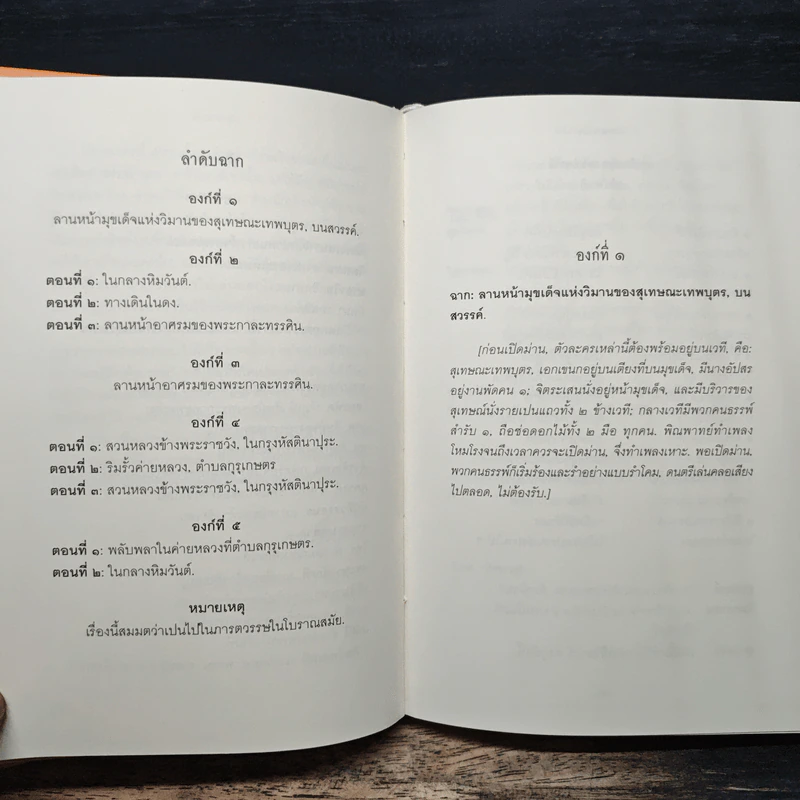 ลำดับฉาก
องก์ที่ ๑
ลานหน้ามุขเด็จแห่งวิมานของสุเทษณะเทพบุตร, บนสวรรค์.
องก์ที่ ๒
ตอนที่ ๑: ในกลางหิมวันต์.
ตอนที่ ๒: ทางเดินในดง.
ตอนที่ ๓: ลานหน้าอาศรมของพระกาละทรรศิน.
องก์ที่ ๓
ลานหน้าอาศรมของพระกาละทรรศิน.
องก์ที่ ๔
ตอนที่ ๑: สวนหลวงข้างพระราชวัง, ในกรุงหัสตินาปุระ.
ตอนที่ ๒: ริมรั้วค่ายหลวง, ตำบลกุรุเกษตร
ตอนที่ ๓: สวนหลวงข้างพระราชวัง, ในกรุงหัสตินาปุระ.
องก์ที่ ๕
ตอนที่ ๑: พลับพลาในค่ายหลวงที่ตำบลกุรุเกษตร.
ตอนที่ ๒: ในกลางหิมวันต์.
หมายเหตุ
เรื่องนี้สมมตว่าเปนไปในภารตวรรษในโบราณสมัย.
องก์ที่ ๑
ฉาก: ลานหน้ามุขเด็จแห่งวิมานของสุเทษณะเทพบุตร, บน
สวรรค์.
[ก่อนเปิดม่าน, ตัวละครเหล่านี้ต้องพร้อมอยู่บนเวที, คือ:
สุเทษณะเทพบุตร, เอกเขนกอยู่บนเตียงที่บนมุขเด็จ, มีนางอัปสร
อยู่งานพัดคน ๑; จิตระเสนนั่งอยู่หน้ามุขเด็จ, และมีบริวารของ
สุเทษณ์นั่งรายเปนแถวทั้ง ๒ ข้างเวที; กลางเวทีมีพวกคนธรรพ์
สำรับ ๑, ถือช่อดอกไม้ทั้ง ๒ มือ ทุกคน. พิณพาทย์ทำเพลง
โหมโรงจนถึงเวลาควรจะเปิดม่าน, จึ่งทำเพลงเหาะ. พอเปิดม่าน,
พวกคนธรรพ์ก็เริ่มร้องและรำอย่างแบบรำโคม, ดนตรีเล่นคลอเสียง
ไปตลอด, ไม่ต้องรับ.]